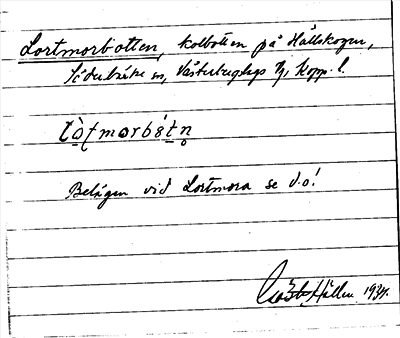 Lortmorbotten, kolbotten på Hållskogen,
Söderbärke sn, Västerbergslags Kopp. l.
Belägen vid Lortmora se d.o!
Hållen 1934.